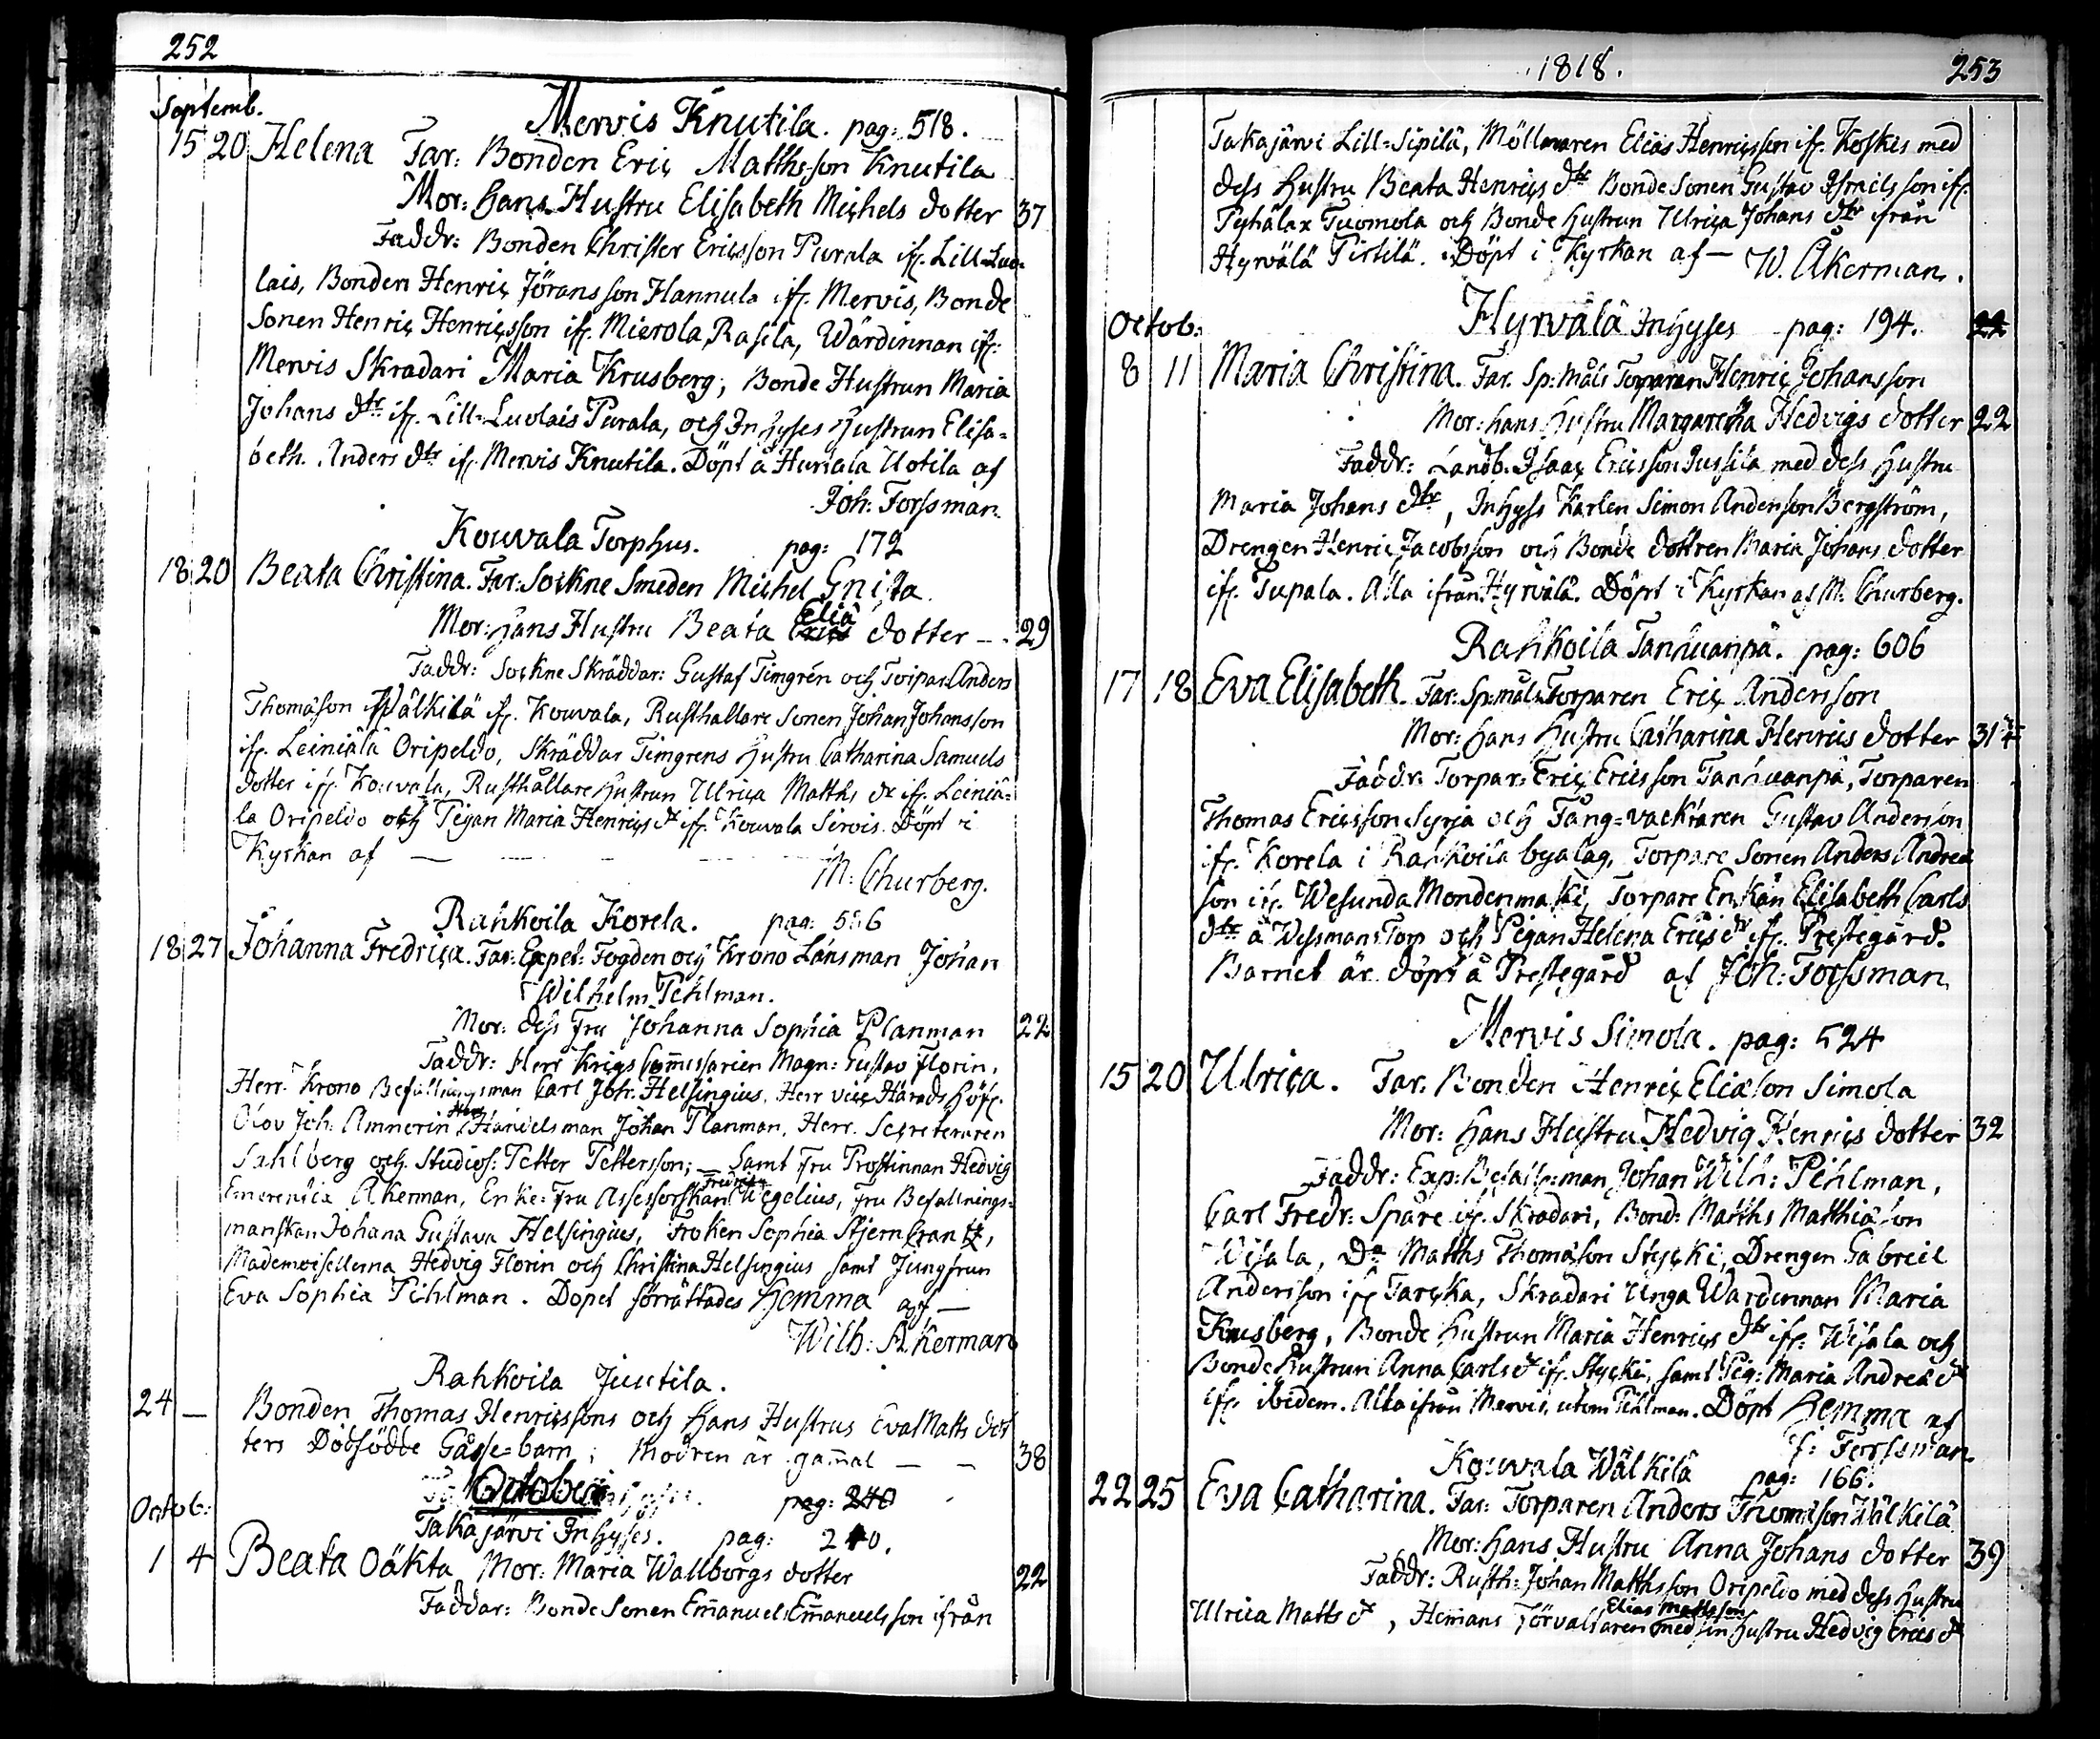 252
Septemb.
Mervis Knutila. pag: 518.
15 20 Helena Far: Bonden Eric Matths-son Knutila
Mor: Hans Hustru Elisabeth Michels dotter 37
Faddr: Bonden Christer Ericsson Purala ifr. Lill-Luo-
lais, Bonden Henric Jöransson Hannula ifr. Mervis, Bonde
Sonen Henric Henricsson ifr. Mierola, Rasila, Wärdinnan ifr.
Mervis Skradari Maria Krusberg, Bonde Hustrun Maria
Johans dtr ifr. Lill-Luolais Purala, och Inhyses Hustrun Elisa-
beth Anders dtr ifr. Mervis Knutila. Döpt å Huriala Uotila af
Joh: Forssman.
Kouvala Torphus. pag: 172
18 20 Beata Christina. Far: Sockne Smeden Michel Gnista.
Mor: Hans Hustru Beata Eliæ dotter - - 29
Faddr: Sockne Skräddar: Gustaf Timgrén och Torpar: Anders
Thomasson Wälkilä ifr. Kouvala, Rusthållare Sonen Johan Johansson
ifr. Leiniälä Oripeldo, Skräddar Timgrens Hustru Catharina Samuels
dotter ifr. Kouvala, Rusthållare Hustrun Ulrica Matths dr ifr. Leiniä-
lä Oripeldo och Pigan Maria Henrics dr ifr. Kouvala Sirvis. Döpt i
Kyrkan af — M: Churberg.
Rahkoila Korela. pag: 586
18 27 Johanna Fredrica. Far: Exped: Fogden och Krono Länsman Johan
Wilhelm Pihlman.
Mor: dess Fru Johanna Sophia Planman 22
Faddr: Herr Krigs Commissarien Magn: Gustav Florin,
Herr Krono Befallningsman Carl Joh: Helsingius, Herr vice Härads Höfd.
Olov Joh: Amnorin, Herr Handelsman Johan Planman, Herr Secreteraren
Sahlberg och Studios: Petter Pettersson; Samt Fru Prostinnan Hedvig
Emerentia Åkerman, Enke-Fru Assessorskan Fredrica Wegelius, Fru Befallnings-
manskan Johana Gustava Helsingius, Fröken Sophia Stjerncrantz,
Mademoisellerna Hedvig Florin och Christina Helsingius samt Jungfrun
Eva Sophia Pihlman. Dopet förrättades Hemma af —
Wilh: Åkerman
Rahkoila Juutila.
24 — Bonden Thomas Henricssons och Hans Hustrus Eva Matts dot
ters Dödfödde Gåsse-barn; Modren är gammal — - 38
October
pag: 240
Octob: Takajärvi Inhyses. pag: 240.
1 4 Beata Oäkta, Mor: Maria Wallborgs dotter 22
Faddar: Bonde Sonen Emanuel Emanuelsson ifrån
1818. 253
Takajärvi Lill-Sipilä, Möllnaren Elias Henricsson ifr. Koskis med
dess Hustru Beata Henrics dtr Bonde Sonen Gustav Israelsson ifr.
Pyhälax Tuomola och Bonde Hustrun Ulrica Johans dtr ifrån
Hyrvälä Pirtilä. Döpt i Kyrkan af — W. Åkerman.
Octob: Hyrvälä Inhyses pag: 194. 22
8 11 Maria Christina. Far. Sp: Måls Torparen Henric Johansson
Mor: hans Hustru Margaretha Hedvigs dotter 22
Faddr: Landb. Isaac Ericsson Jussila med dess Hustru
Maria Johans dtr, Inhyss Karlen Simon Anderson Bergström,
Drengen Henric Jacobsson och Bonde dottren Maria Johans dotter
ifr. Tupala. Alla ifrån Hyrvälä. Döpt i Kyrkan af M: Churberg.
Rahkoila Tanhuanpä. pag: 606
17 18 Eva Elisabeth. Far: Sp: måls Torparen Eric Andersson
Mor: Hans Hustru Catharina Henrics dotter 31
Faddr: Torpar: Eric Ericsson Tanhuanpä, Torparen
Thomas Ericsson Syrjä och Fång-vacktaren Gustav Anderson
ifr. Korela i Rahkoila byalag, Torpare Sonen Anders Andreæ
son ifr. Wesunda Mondenmäki, Torpare Enkan Elisabeth Carls
dtr å Wessmans Torp och Pigan Helena Erics dr ifr. Prestegård.
Barnet är döpt å Prestegård af Joh: Forssman
Mervis Simola. pag: 524
15 20 Ulrica. Far: Bonden Henric Eliæson Simola
Mor: Hans Hustru Hedvig Henrics dotter 32
Faddr: Exp: Befalln:man Johan Wilh: Pihlman,
Carl Fredr: Spåre ifr. Skradari, Bond: Matths Matthiæson
Wisala, Do Matths Thomasson Stycki, Drengen Gabriel
Andersson ifr. Tarcka, Skradari Unga Wärdinnan Maria
Krusberg, Bonde Hustrun Maria Henrics dtr ifr. Wisala och
Bonde Hustrun Anna Carls dr ifr. Stycki, samt Pig: Maria Andreæ dr
ifr. ibidem. Alla ifrån Mervis, utom Pihlman. Döpt Hemma af
J: Forssman
Kouvala Wälkilä pag: 166.
22 25 Eva Catharina. Far: Torparen Anders Thomasson Wälkilä
Mor: Hans Hustru Anna Johans dotter 39
Faddr: Rusth: Johan Matthsson Oripeldo med dess Hustru
Ulrica Matts dr, Hemans Förvaltaren Elias Mattsson med sin Hustru Hedvig Erics dr